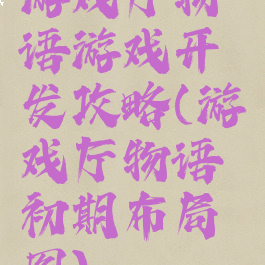 游戏厅物
语游戏开
发攻略(游
戏厅物语
初期布局
图)